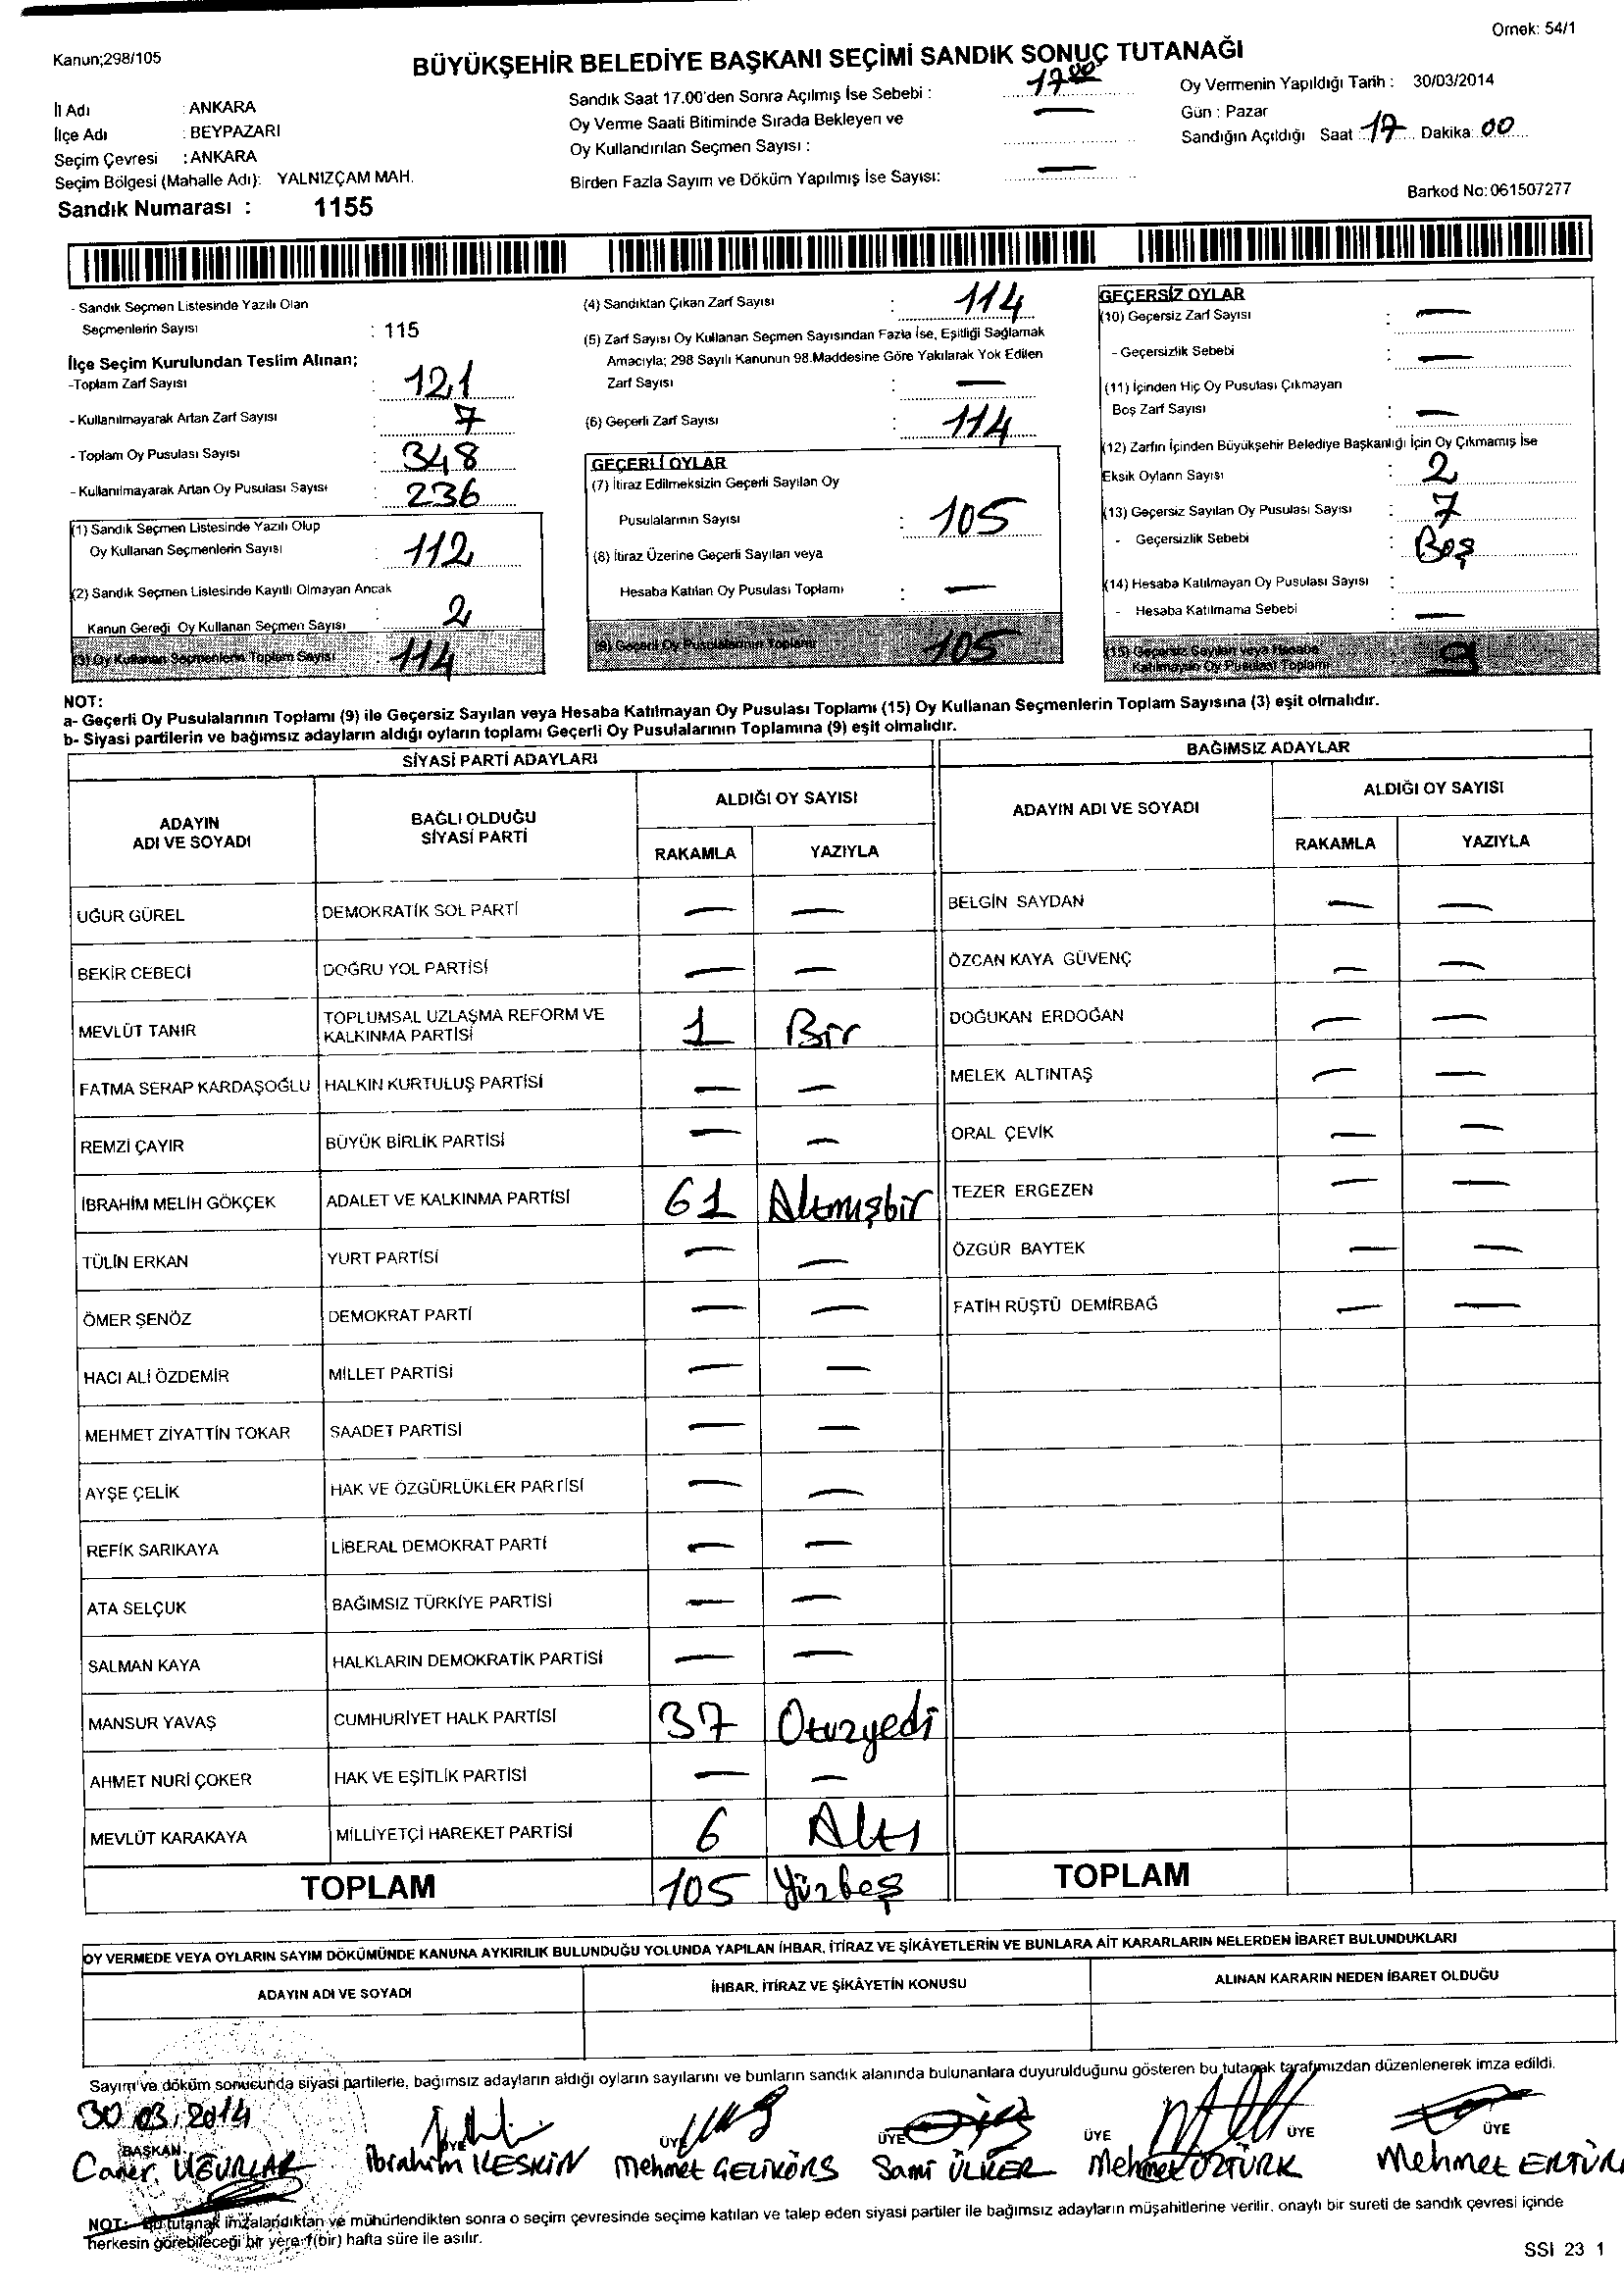 Ornek: 54/1
Kanun;298/105
BÜYÜKŞEHİR BELEDİYE BAŞKANI SEÇİMİ SANDIK SONUÇ TUTANAĞI
İl Adı : ANKARA
İlçe Adı : BEYPAZARI
Seçim Çevresi : ANKARA
Seçim Bölgesi (Mahalle Adı): YALNIZÇAM MAH.
Sandık Numarası : 1155
Sandık Saat 17.00'den Sonra Açılmış İse Sebebi : 17 00
Oy Verme Saati Bitiminde Sırada Bekleyen ve —
Oy Kullandırılan Seçmen Sayısı :
Birden Fazla Sayım ve Döküm Yapılmış İse Sayısı: —
Oy Vermenin Yapıldığı Tarih : 30/03/2014
Gün : Pazar
Sandığın Açıldığı Saat : 17 Dakika: 00
Barkod No: 061507277
- Sandık Seçmen Listesinde Yazılı Olan
Seçmenlerin Sayısı : 115
İlçe Seçim Kurulundan Teslim Alınan;
-Toplam Zarf Sayısı : 121
- Kullanılmayarak Artan Zarf Sayısı : 7
- Toplam Oy Pusulası Sayısı : 348
- Kullanılmayarak Artan Oy Pusulası Sayısı : 236
(1) Sandık Seçmen Listesinde Yazılı Olup
Oy Kullanan Seçmenlerin Sayısı : 112
(2) Sandık Seçmen Listesinde Kayıtlı Olmayan Ancak
Kanun Gereği Oy Kullanan Seçmen Sayısı : 2
(3) Oy Kullanan Seçmenlerin Toplam Sayısı : 114
(4) Sandıktan Çıkan Zarf Sayısı : 114
(5) Zarf Sayısı Oy Kullanan Seçmen Sayısından Fazla İse, Eşitliği Sağlamak
Amacıyla; 298 Sayılı Kanunun 98.Maddesine Göre Yakılarak Yok Edilen
Zarf Sayısı : —
(6) Geçerli Zarf Sayısı : 114
GEÇERLİ OYLAR
(7) İtiraz Edilmeksizin Geçerli Sayılan Oy
Pusulalarının Sayısı : 105
(8) İtiraz Üzerine Geçerli Sayılan veya
Hesaba Katılan Oy Pusulası Toplamı : —
(9) Geçerli Oy Pusulalarının Toplamı 105
GEÇERSİZ OYLAR
(10) Geçersiz Zarf Sayısı : —
- Geçersizlik Sebebi : —
(11) İçinden Hiç Oy Pusulası Çıkmayan
Boş Zarf Sayısı : —
(12) Zarfın İçinden Büyükşehir Belediye Başkanlığı İçin Oy Çıkmamış İse
Eksik Oyların Sayısı : 2
(13) Geçersiz Sayılan Oy Pusulası Sayısı : 7
- Geçersizlik Sebebi : Boş
(14) Hesaba Katılmayan Oy Pusulası Sayısı :
- Hesaba Katılmama Sebebi : —
(15) Geçersiz Sayılan veya Hesaba
Katılmayan Oy Pusulası Toplamı 9
NOT:
a- Geçerli Oy Pusulalarının Toplamı (9) ile Geçersiz Sayılan veya Hesaba Katılmayan Oy Pusulası Toplamı (15) Oy Kullanan Seçmenlerin Toplam Sayısına (3) eşit olmalıdır.
b- Siyasi partilerin ve bağımsız adayların aldığı oyların toplamı Geçerli Oy Pusulalarının Toplamına (9) eşit olmalıdır.
SİYASİ PARTİ ADAYLARI
ADAYIN
ADI VE SOYADI
BAĞLI OLDUĞU
SİYASİ PARTİ
ALDIĞI OY SAYISI
RAKAMLA YAZIYLA
UĞUR GÜREL DEMOKRATİK SOL PARTİ — —
BEKİR CEBECİ DOĞRU YOL PARTİSİ — —
MEVLÜT TANIR TOPLUMSAL UZLAŞMA REFORM VE
KALKINMA PARTİSİ 1 Bir
FATMA SERAP KARDAŞOĞLU HALKIN KURTULUŞ PARTİSİ — —
REMZİ ÇAYIR BÜYÜK BİRLİK PARTİSİ — —
İBRAHİM MELİH GÖKÇEK ADALET VE KALKINMA PARTİSİ 61 Altmışbir
TÜLİN ERKAN YURT PARTİSİ — —
ÖMER ŞENÖZ DEMOKRAT PARTİ — —
HACI ALİ ÖZDEMİR MİLLET PARTİSİ — —
MEHMET ZİYATTİN TOKAR SAADET PARTİSİ — —
AYŞE ÇELİK HAK VE ÖZGÜRLÜKLER PARTİSİ — —
REFİK SARIKAYA LİBERAL DEMOKRAT PARTİ — —
ATA SELÇUK BAĞIMSIZ TÜRKİYE PARTİSİ — —
SALMAN KAYA HALKLARIN DEMOKRATİK PARTİSİ — —
MANSUR YAVAŞ CUMHURİYET HALK PARTİSİ 37 Otuzyedi
AHMET NURİ ÇOKER HAK VE EŞİTLİK PARTİSİ — —
MEVLÜT KARAKAYA MİLLİYETÇİ HAREKET PARTİSİ 6 Altı
TOPLAM 105 Yüzbeş
BAĞIMSIZ ADAYLAR
ADAYIN ADI VE SOYADI
ALDIĞI OY SAYISI
RAKAMLA YAZIYLA
BELGİN SAYDAN — —
ÖZCAN KAYA GÜVENÇ — —
DOĞUKAN ERDOĞAN — —
MELEK ALTINTAŞ — —
ORAL ÇEVİK — —
TEZER ERGEZEN — —
ÖZGÜR BAYTEK — —
FATİH RÜŞTÜ DEMİRBAĞ — —
TOPLAM
OY VERMEDE VEYA OYLARIN SAYIM DÖKÜMÜNDE KANUNA AYKIRILIK BULUNDUĞU YOLUNDA YAPILAN İHBAR, İTİRAZ VE ŞİKÂYETLERİN VE BUNLARA AİT KARARLARIN NELERDEN İBARET BULUNDUKLARI
ADAYIN ADI VE SOYADI İHBAR, İTİRAZ VE ŞİKÂYETİN KONUSU ALINAN KARARIN NEDEN İBARET OLDUĞU
Sayım ve döküm sonucunda siyasi partilerle, bağımsız adayların aldığı oyların sayılarını ve bunların sandık alanında bulunanlara duyurulduğunu gösteren bu tutanak tarafımızdan düzenlenerek imza edildi.
30.03.2014
BAŞKAN ÜYE ÜYE ÜYE ÜYE ÜYE ÜYE
Caner UĞURLAR İbrahim KESKİN Mehmet GELİKÖRS Sami ÜLKER Mehmet ÖZTÜRK Mehmet ERTÜR
NOT: Bu tutanak imzalandıktan ve mühürlendikten sonra o seçim çevresinde seçime katılan ve talep eden siyasi partiler ile bağımsız adayların müşahitlerine verilir. onaylı bir sureti de sandık çevresi içinde
herkesin görebileceği bir yere 1(bir) hafta süre ile asılır.
SSI 23 1